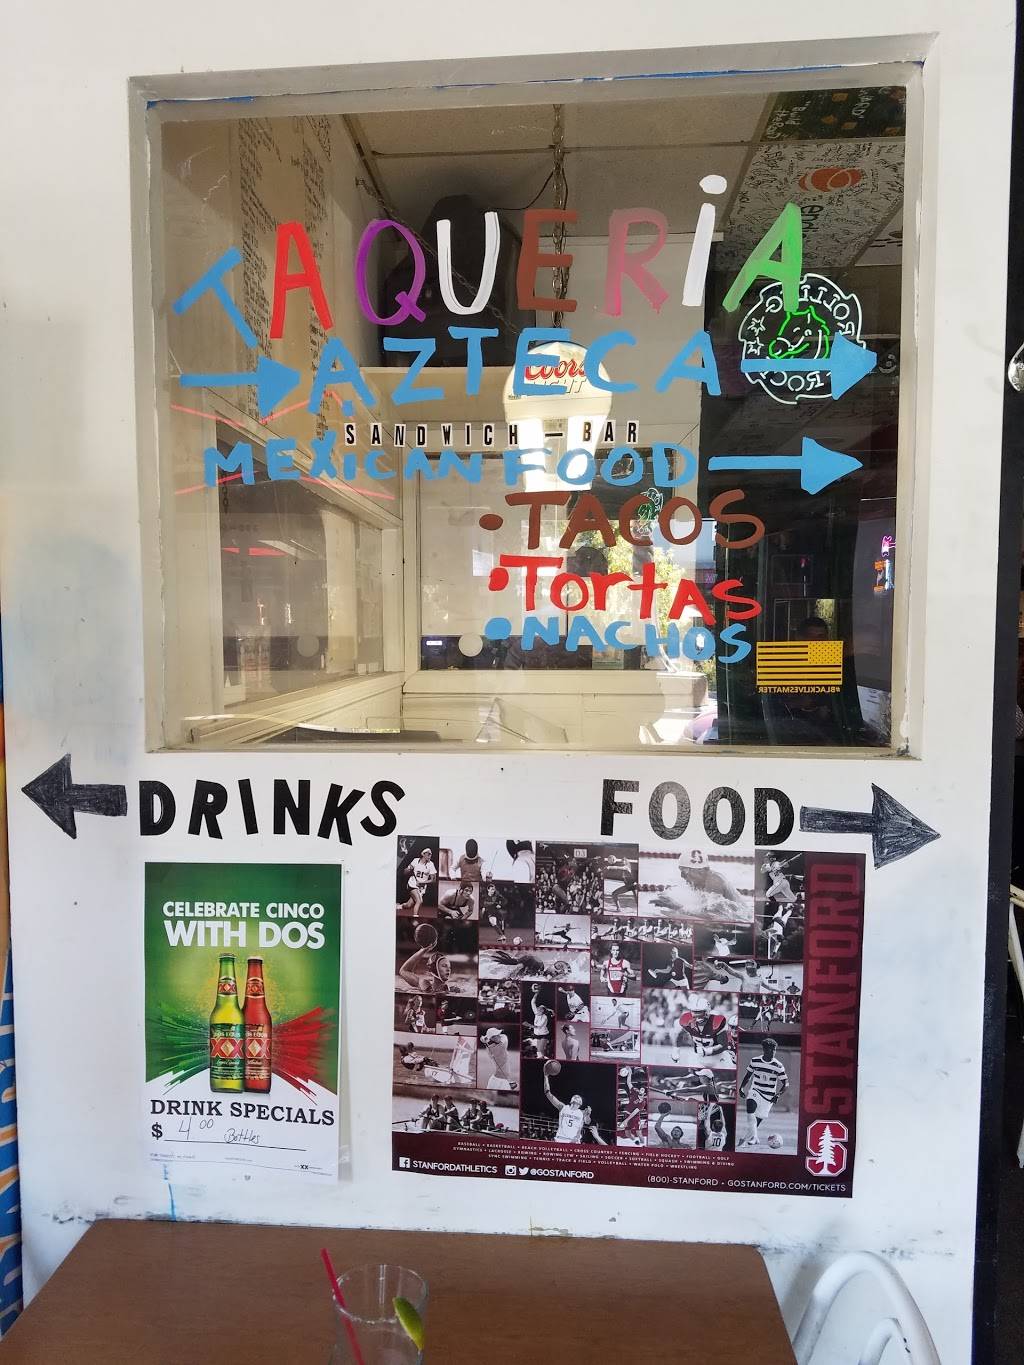 TAQUERiA
AZTECA
Coors
LIGHT
SANDWICH - BAR
MEXiCAN FOOD
• TACOS
• TortAS
• NACHOS
#BLACKLIVESMATTER
DRINKS
FOOD
CELEBRATE CINCO
WITH DOS
XX XX
DRINK SPECIALS
$ 4 00 Bottles
STANFORD
BASEBALL • BASKETBALL • BEACH VOLLEYBALL • CROSS COUNTRY • FENCING • FIELD HOCKEY • FOOTBALL • GOLF
GYMNASTICS • LACROSSE • ROWING • ROWING LTW • SAILING • SOCCER • SOFTBALL • SQUASH • SWIMMING & DIVING
SYNC SWIMMING • TENNIS • TRACK & FIELD • VOLLEYBALL • WATER POLO • WRESTLING
STANFORDATHLETICS @GOSTANFORD (800)-STANFORD • GOSTANFORD.COM/TICKETS